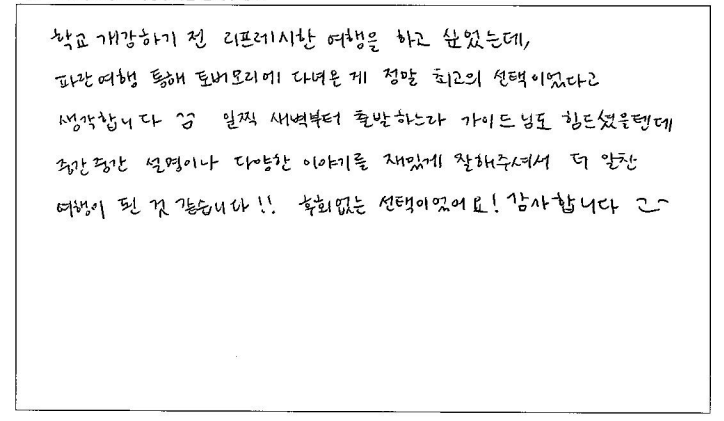 학교 개강하기 전 리프레시한 여행을 하고 싶었는데,
파란여행 통해 토버모리에 다녀온 게 정말 최고의 선택이었다고
생각합니다 ^^ 일찍 새벽부터 출발하느라 가이드님도 힘드셨을텐데
중간중간 설명이나 다양한 이야기를 재밌게 잘해주셔서 더 알찬
여행이 된 것 같습니다!! 후회없는 선택이었어요! 감사합니다 ^^